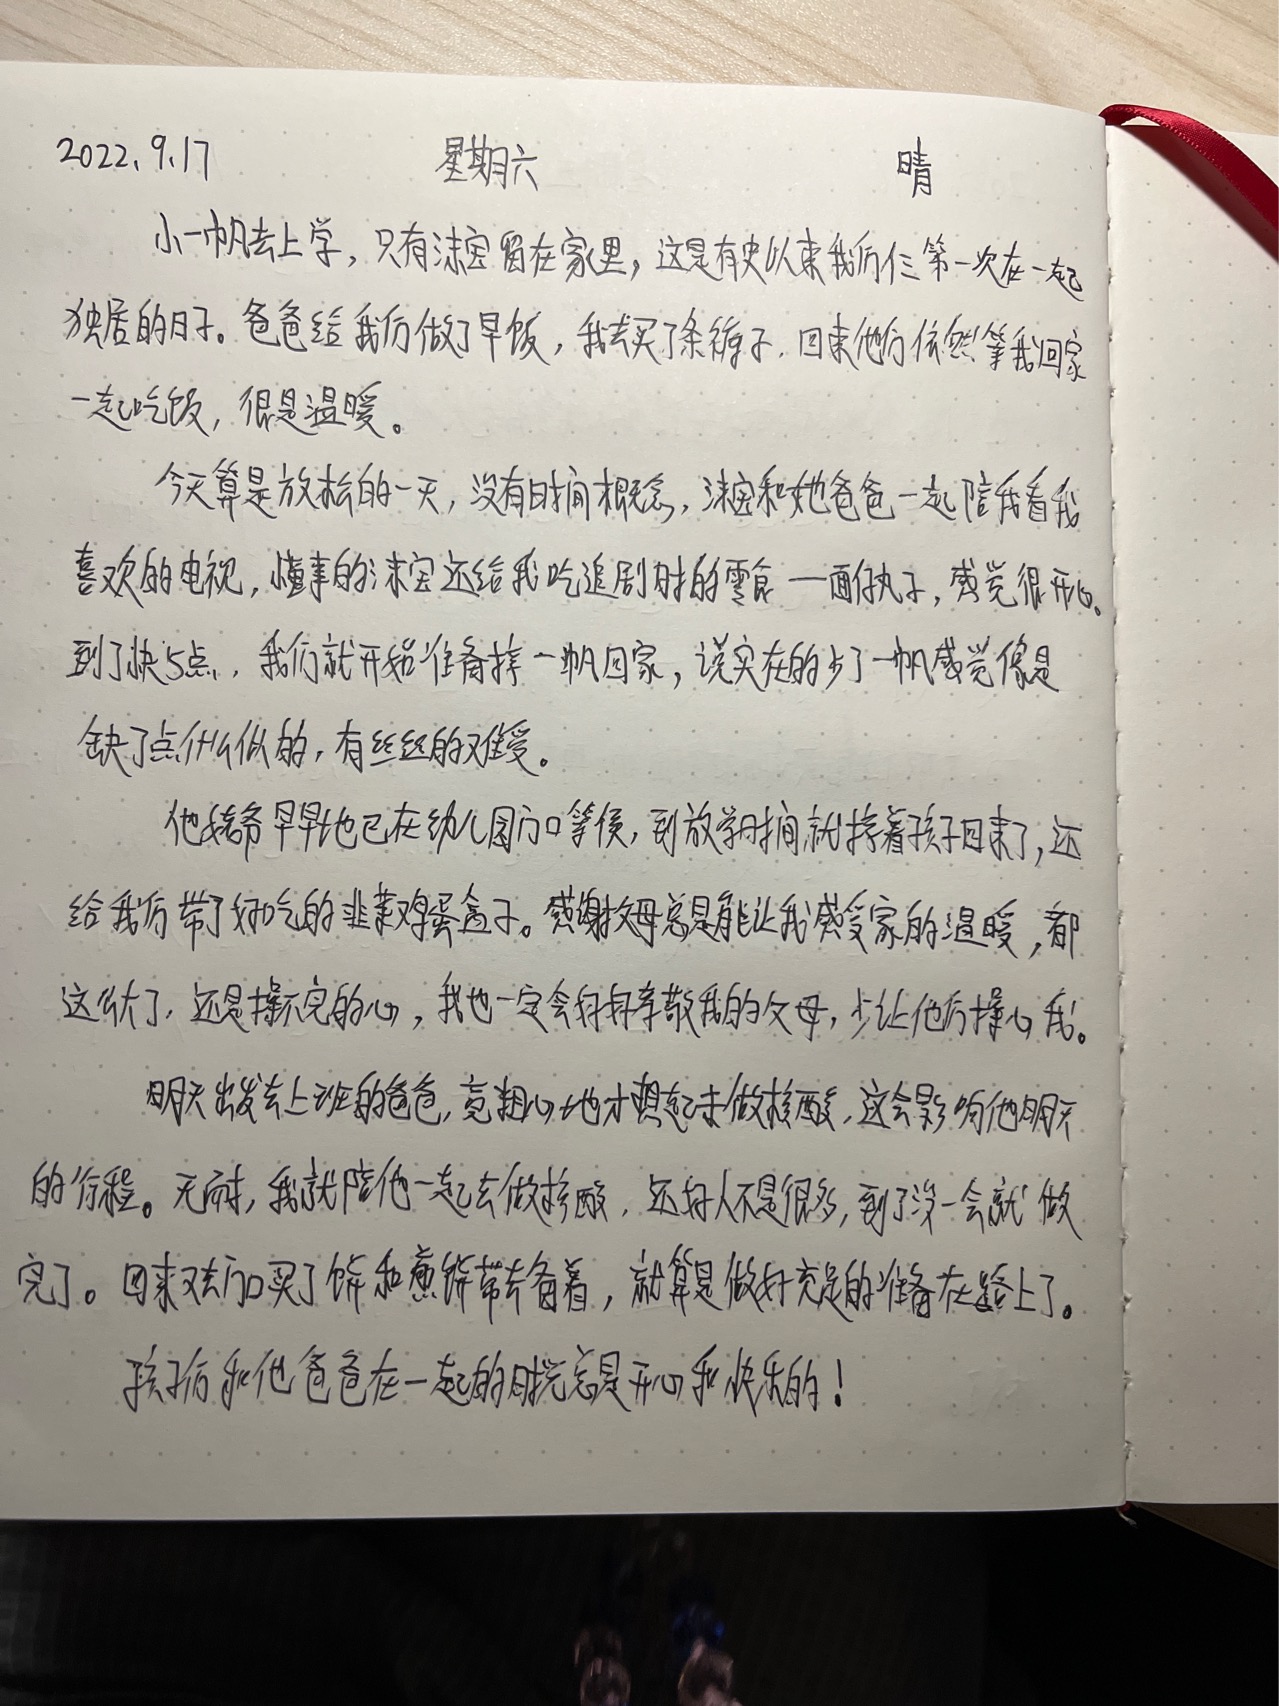 2022.9.17 星期六 晴
小一帆去上学，只有沫宝留在家里，这是有史以来我们仨第一次在一起
独居的日子。爸爸给我们做了早饭，我去买了条裤子，回来他们依然等我回家
一起吃饭，很是温暖。
今天算是放松的一天，没有时间概念，沫宝和她爸爸一起陪我看我
喜欢的电视，懂事的沫宝还给我吃追剧时的零食——面作丸子，感觉很开心。
到了快5点，我们就开始准备接一帆回家，说实在的少了一帆感觉像是
缺了点什么似的，有丝丝的难受。
他爷早早地已在幼儿园门口等侯，到放学时间就接着孩子回来了，还
给我们带了好吃的韭菜鸡蛋盒子。感谢父母总是能让我感受家的温暖，都
这么大了，还是操不完的心，我也一定会好好孝敬我的父母，少让他们操心我。
明天出发去上班的爸爸，竟粗心地才想起未做核酸，这会影响他明天
的行程。无耐，我就陪他一起去做核酸，还好人不是很多，到了没一会就做
完了。回来又去门口买了饼和煎饼带去备着，就算是做好充足的准备在路上了。
孩子们和他爸爸在一起的时光总是开心和快乐的！